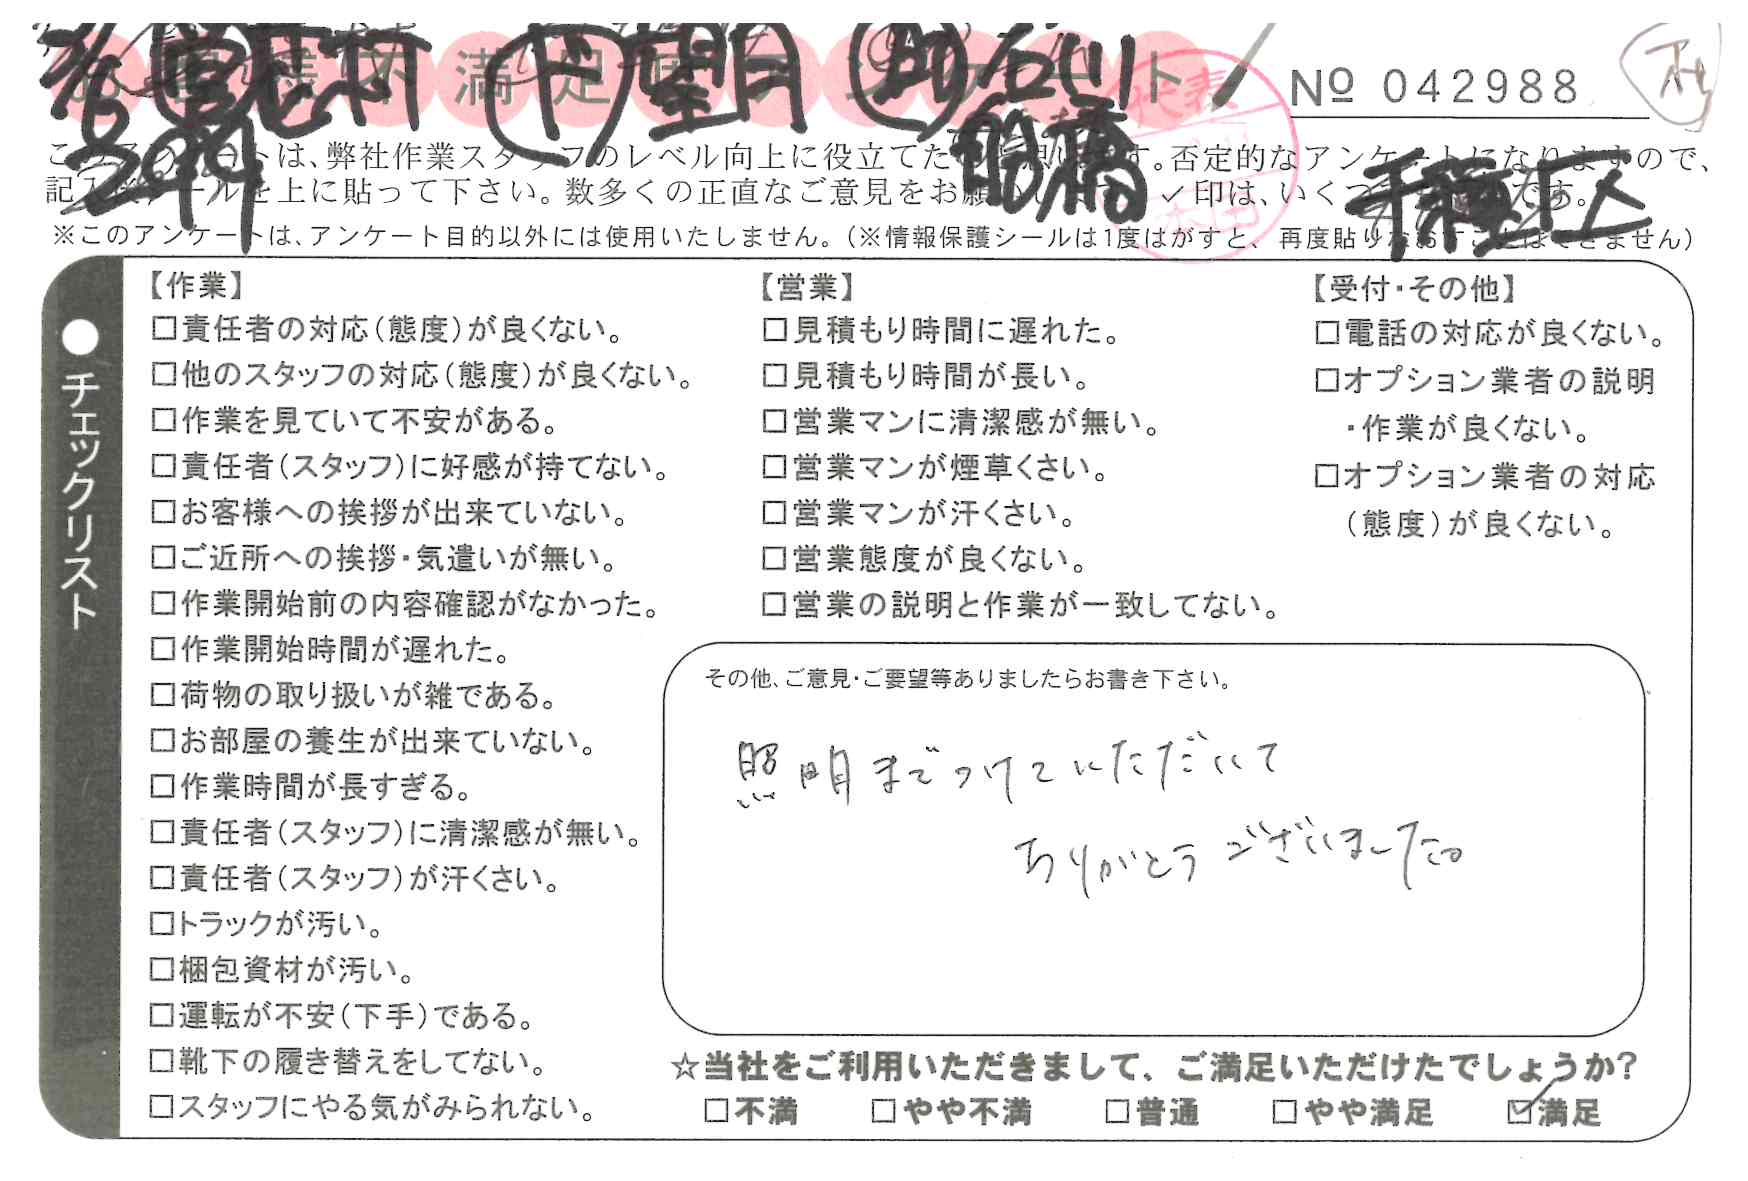 お客様不満足度アンケート
営志村 ド 望月 助 石川
船橋
手稲区
No 042988
このアンケートは、弊社作業スタッフのレベル向上に役立てたいと思います。否定的なアンケートになりますので、
記入後、シールを上に貼って下さい。数多くの正直なご意見をお願いします。✓印は、いくつでも結構です。
※このアンケートは、アンケート目的以外には使用いたしません。(※情報保護シールは1度はがすと、再度貼りなおすことはできません)
●チェックリスト
【作業】
□責任者の対応(態度)が良くない。
□他のスタッフの対応(態度)が良くない。
□作業を見ていて不安がある。
□責任者(スタッフ)に好感が持てない。
□お客様への挨拶が出来ていない。
□ご近所への挨拶・気遣いが無い。
□作業開始前の内容確認がなかった。
□作業開始時間が遅れた。
□荷物の取り扱いが雑である。
□お部屋の養生が出来ていない。
□作業時間が長すぎる。
□責任者(スタッフ)に清潔感が無い。
□責任者(スタッフ)が汗くさい。
□トラックが汚い。
□梱包資材が汚い。
□運転が不安(下手)である。
□靴下の履き替えをしてない。
□スタッフにやる気がみられない。
【営業】
□見積もり時間に遅れた。
□見積もり時間が長い。
□営業マンに清潔感が無い。
□営業マンが煙草くさい。
□営業マンが汗くさい。
□営業態度が良くない。
□営業の説明と作業が一致してない。
【受付・その他】
□電話の対応が良くない。
□オプション業者の説明
・作業が良くない。
□オプション業者の対応
(態度)が良くない。
その他、ご意見・ご要望等ありましたらお書き下さい。
照明までつけていただいて
ありがとうございました。
☆当社をご利用いただきまして、ご満足いただけたでしょうか?
□不満 □やや不満 □普通 □やや満足 ☑満足